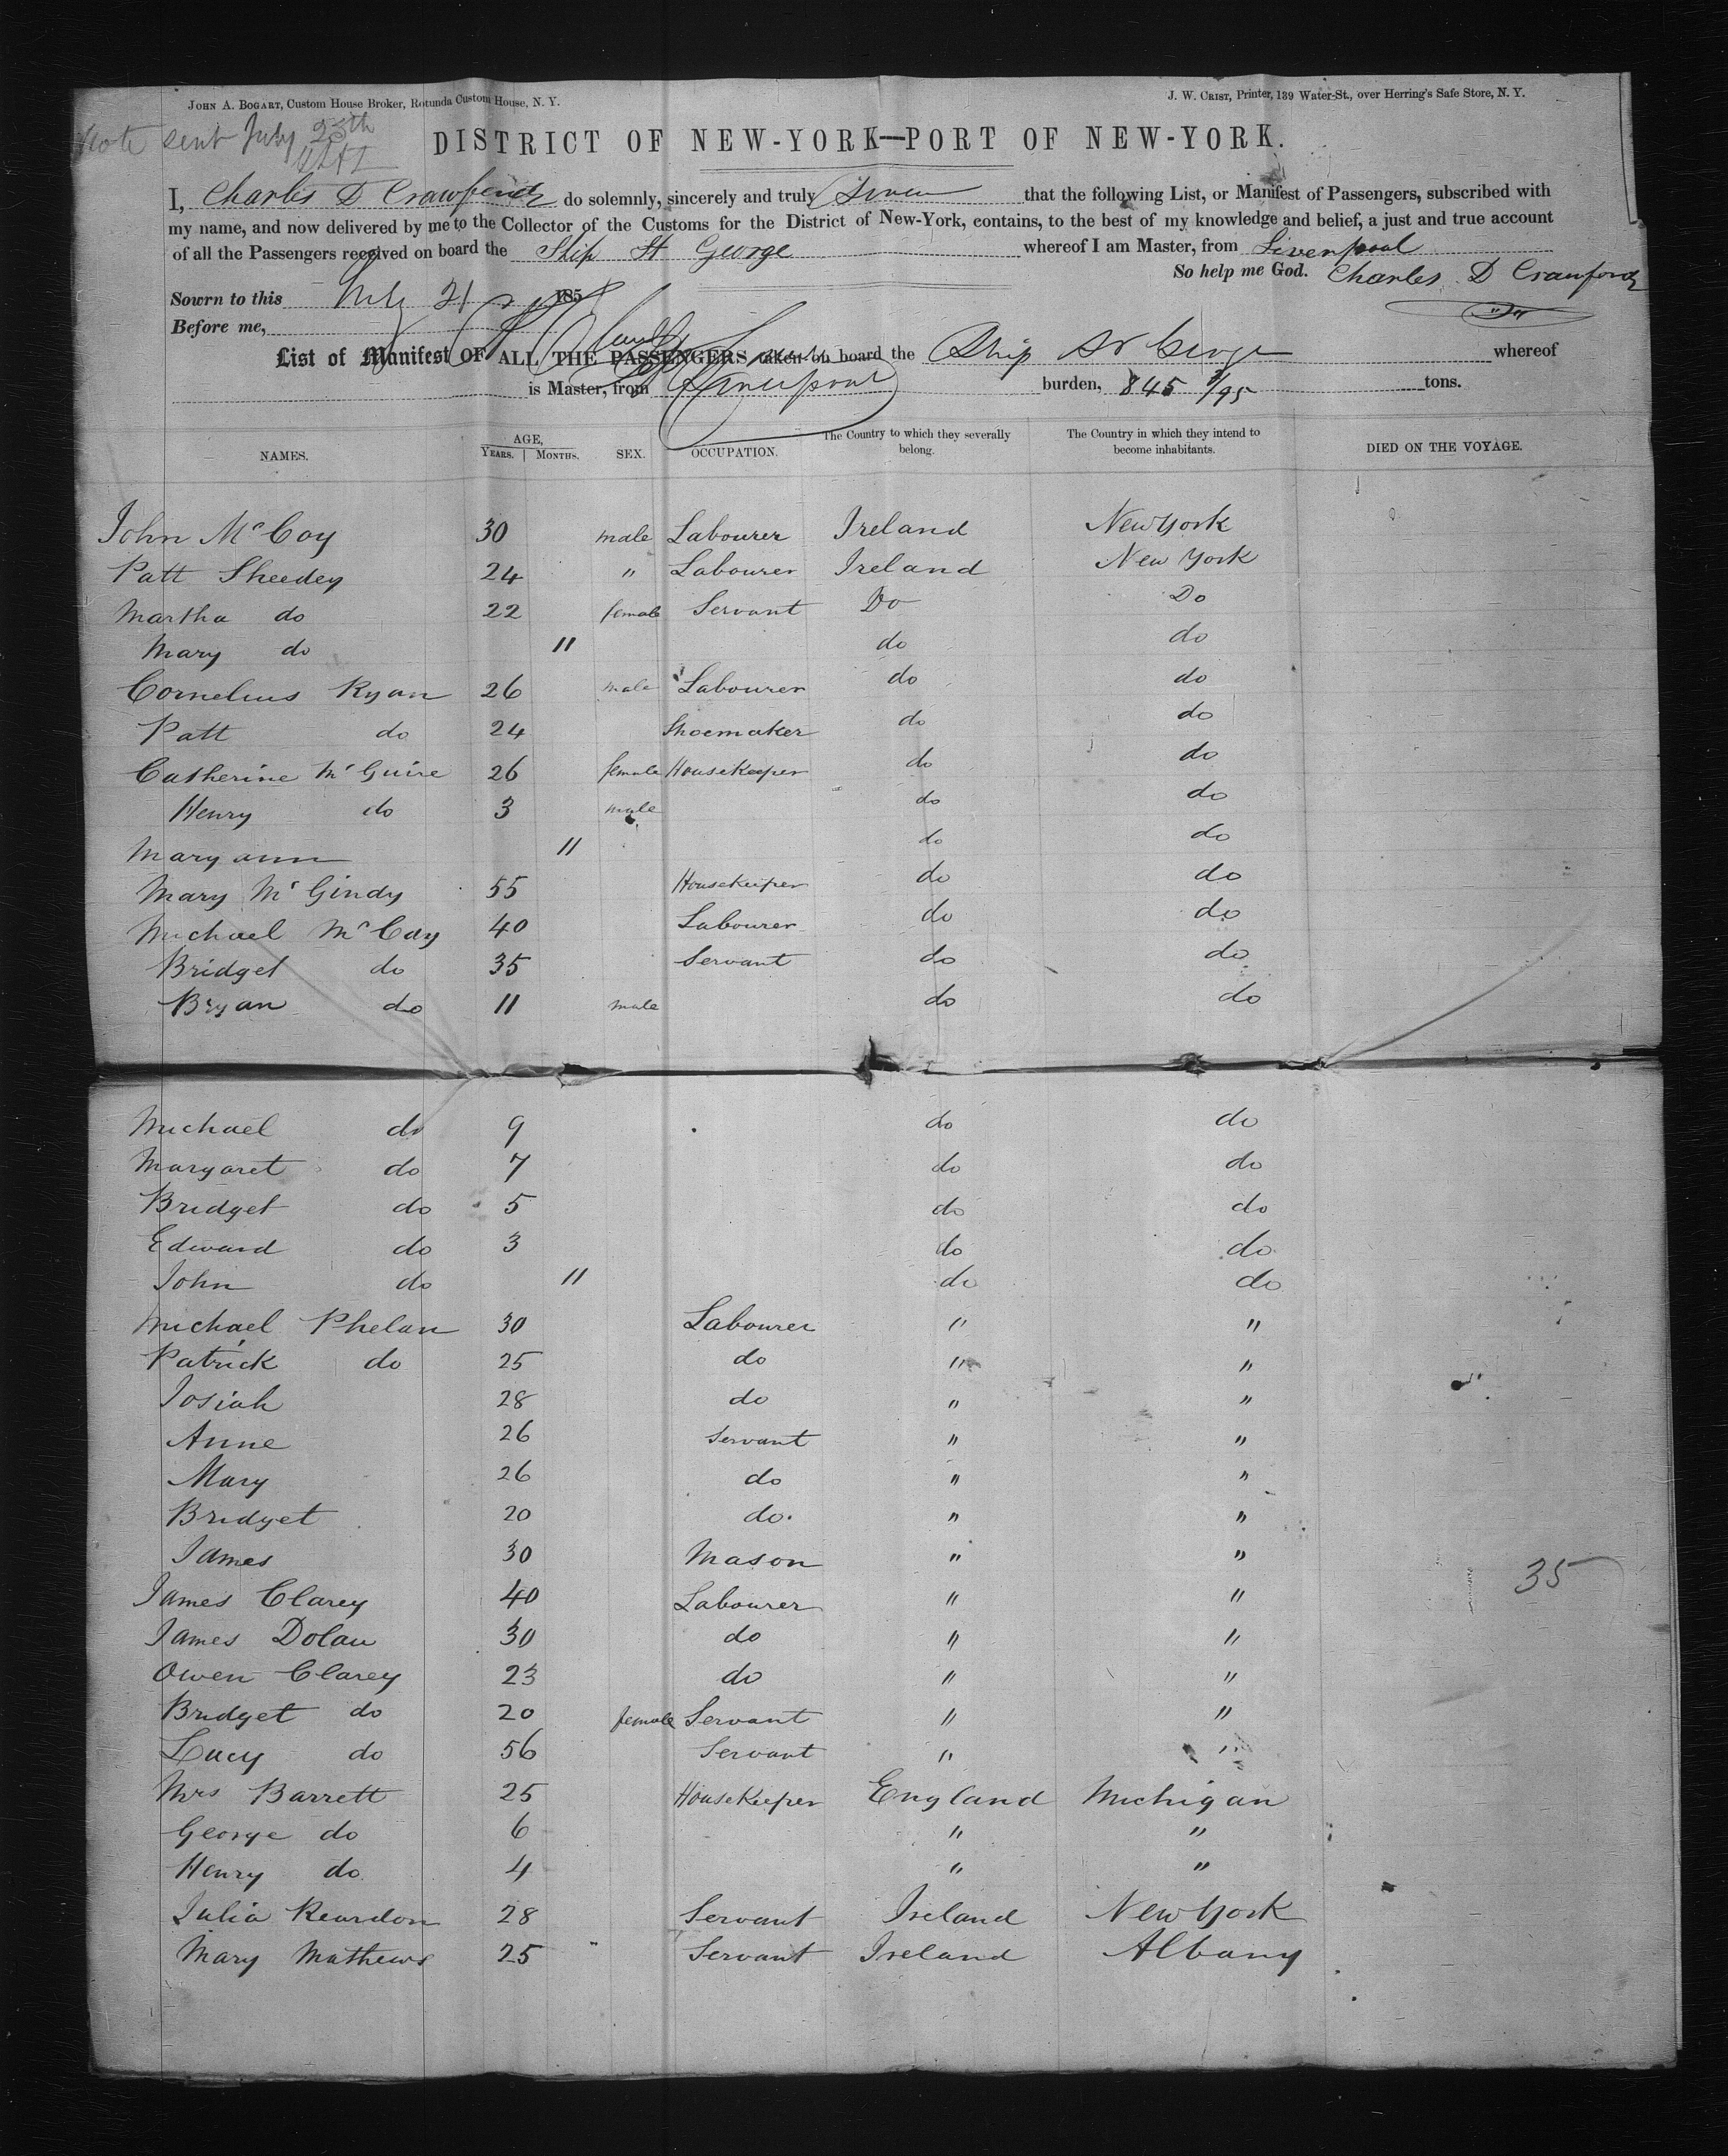 JOHN A. BOGART, Custom House Broker, Rotunda Custom House, N. Y.
J. W. CRIST, Printer, 139 Water-St., over Herring's Safe Store, N. Y.
Note sent July 25th
DISTRICT OF NEW-YORK—PORT OF NEW-YORK.
I, Charles D Crawford do solemnly, sincerely and truly Swear that the following List, or Manifest of Passengers, subscribed with
my name, and now delivered by me to the Collector of the Customs for the District of New-York, contains, to the best of my knowledge and belief, a just and true account
of all the Passengers received on board the Ship St George whereof I am Master, from Liverpool
So help me God. Charles D Crawford
Sowrn to this July 21 185
Before me,
List of Manifest OF ALL THE PASSENGERS taken on board the Ship St George whereof
is Master, from Liverpool burden, 845 /95 tons.
NAMES. AGE, YEARS. MONTHS. SEX. OCCUPATION. The Country to which they severally belong. The Country in which they intend to become inhabitants. DIED ON THE VOYAGE.
John McCoy 30 male Labourer Ireland New York
Patt Sheedey 24 " Labourer Ireland New York
Martha do 22 female Servant Do Do
Mary do 11 do do
Cornelius Ryan 26 male Labourer do do
Patt do 24 Shoemaker do do
Catherine McGuire 26 female HouseKeeper do do
Henry do 3 male do do
Mary ann 11 do do
Mary McGindy 55 Housekeeper do do
Michael McCoy 40 Labourer do do
Bridget do 35 Servant do do
Bryan do 11 male do do
Michael do 9 do do
Margaret do 7 do do
Bridget do 5 do do
Edward do 3 do do
John do 11 do do
Michael Phelan 30 Labourer " "
Patrick do 25 do " "
Josiah 28 do " "
Anne 26 Servant " "
Mary 26 do " "
Bridget 20 do. " "
James 30 Mason " "
35
James Clarey 40 Labourer " "
James Dolan 30 do " "
Owen Clarey 23 do " "
Bridget do 20 female Servant " "
Lucy do 56 Servant " "
Mrs Barrett 25 HouseKeeper England Michigan
George do 6 " "
Henry do 4 " "
Julia Reardon 28 Servant Ireland New York
Mary Mathews 25 Servant Ireland Albany